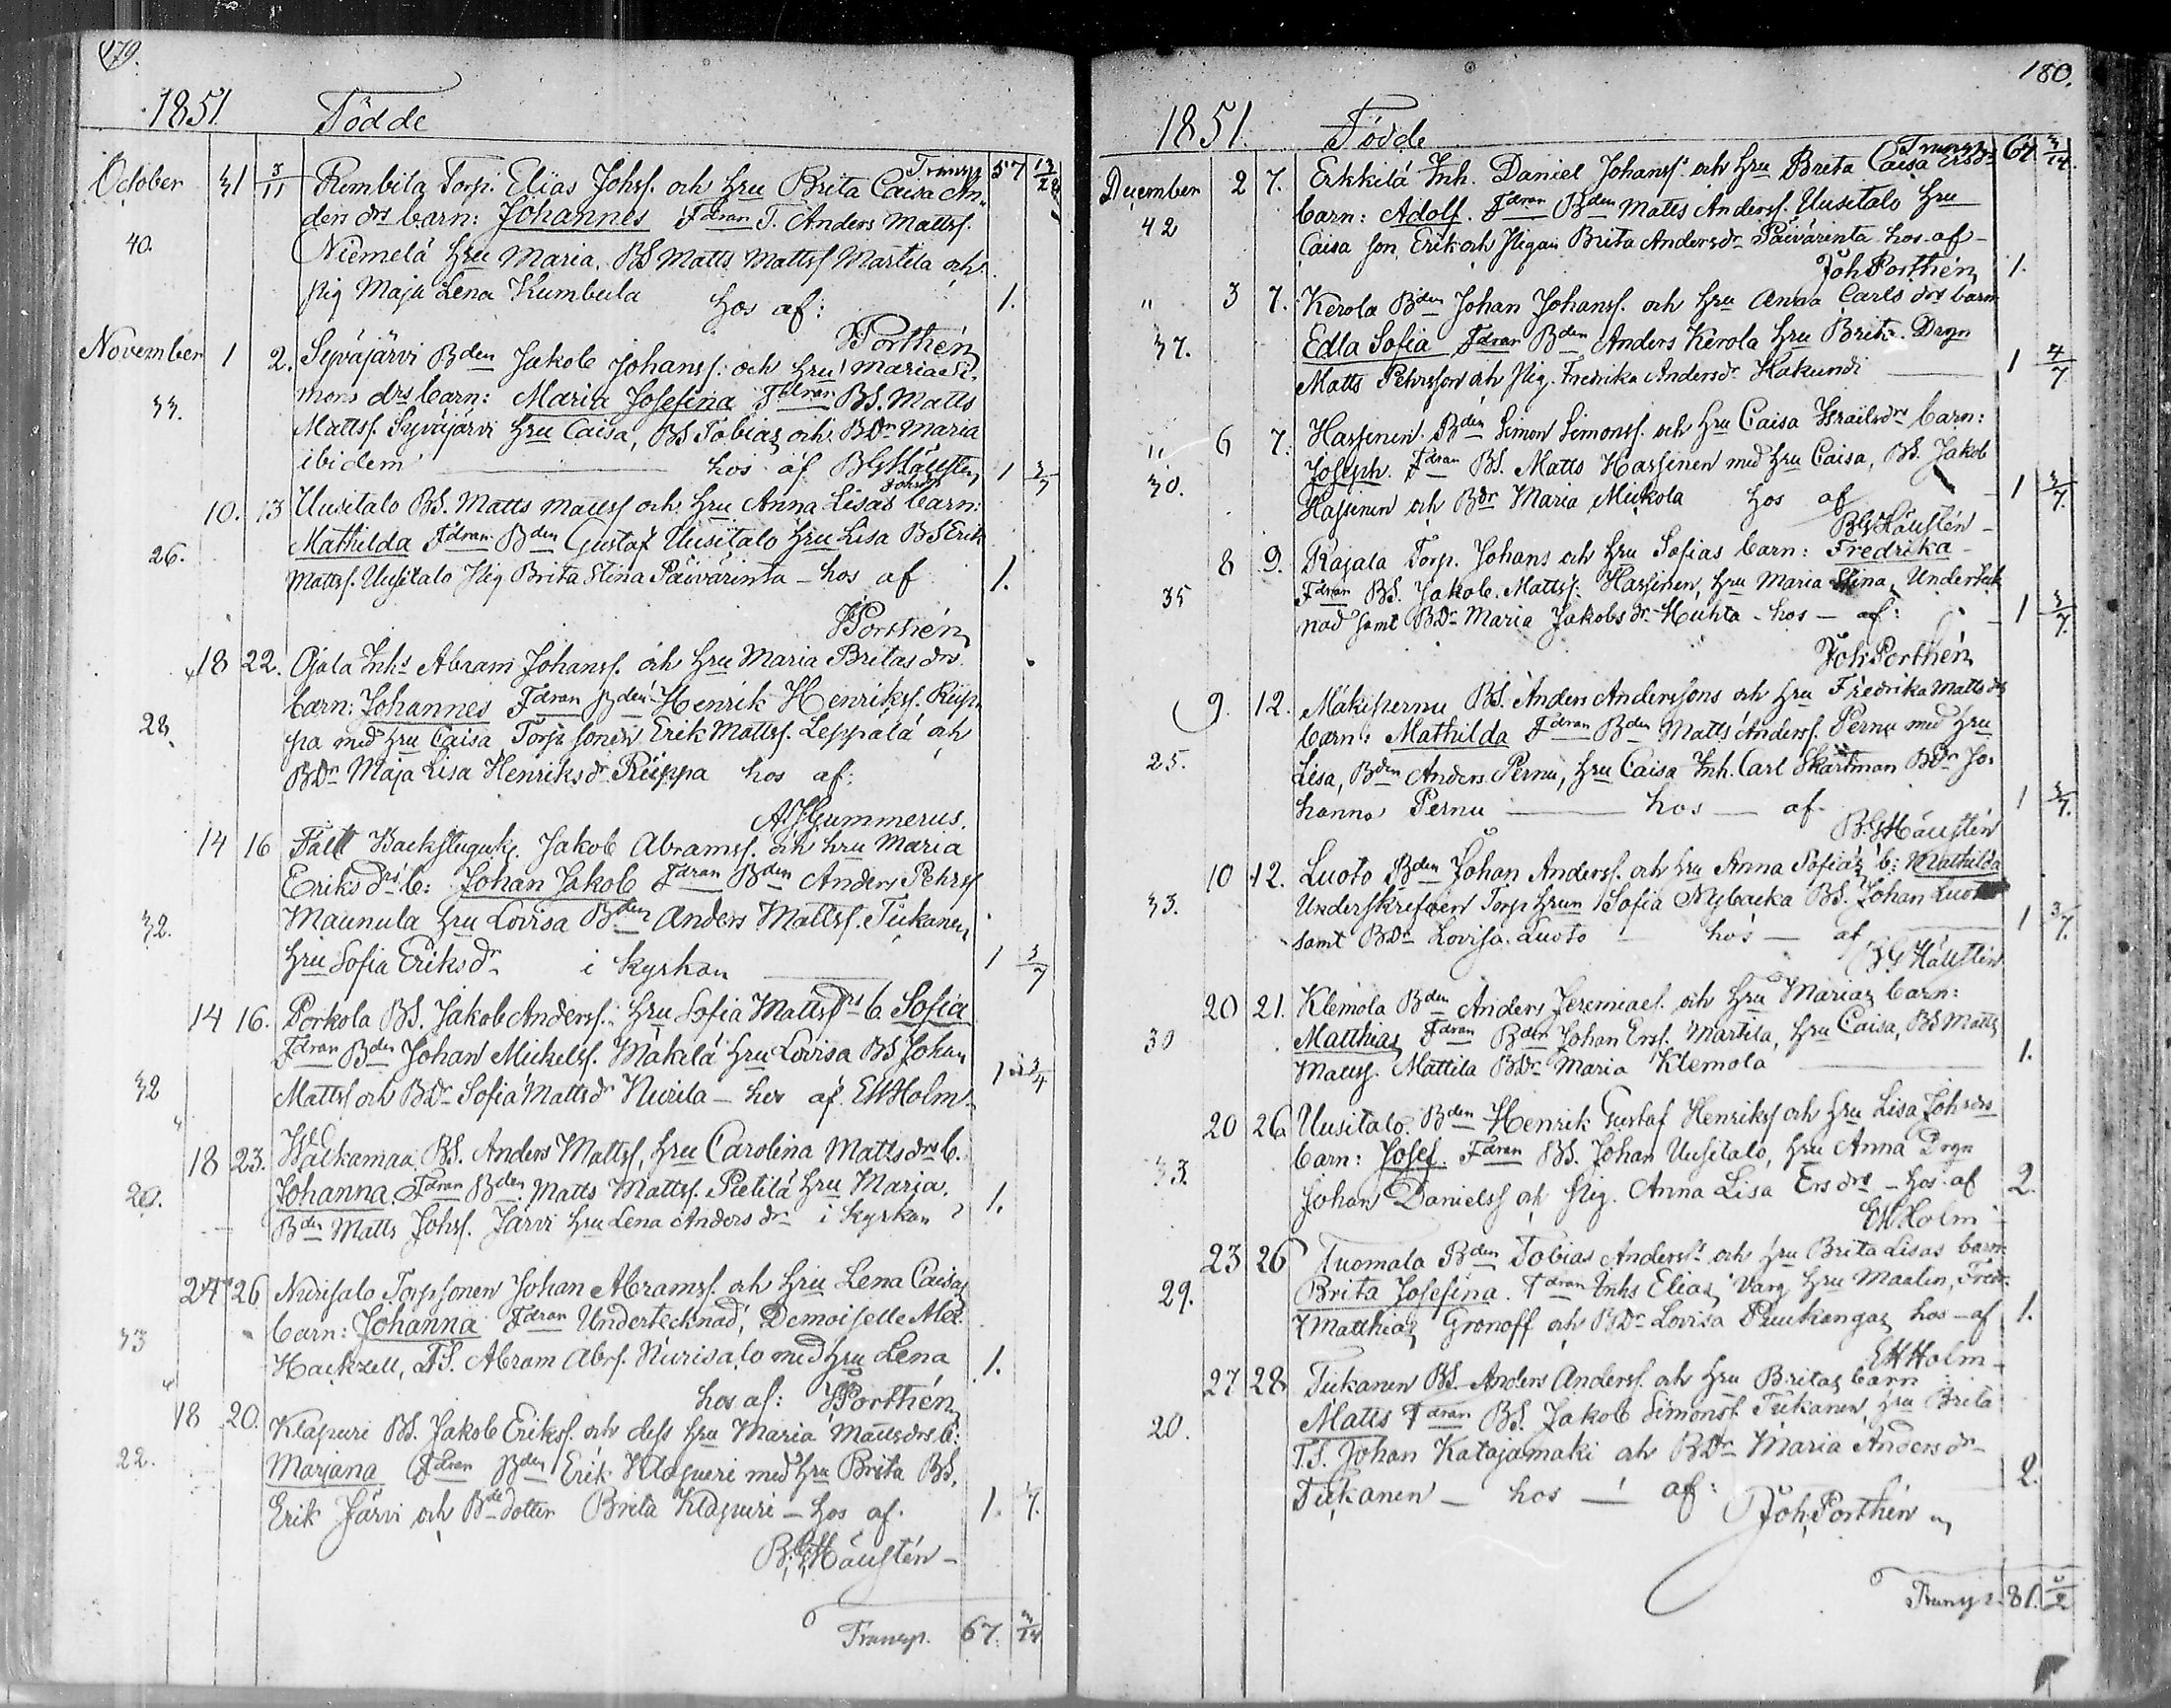 179.
1851 Födde
Transp. 57 13/28
October 31 3/11 Rumbila Torp. Elias Johss. och hru Brita Caisa An-
ders drs barn: Johannes Fdran T. Anders Mattss.
40. Niemelä hru Maria. BS Matts Mattss Martila och
pig Maja Lena Kumbula hos af: 1.
JPorthén
November 1 2. Syväjärvi Bden Jakob Johanss. och hru Maria Si-
mons drs barn: Maria Josefina Fdran BS. Matts
33. Mattss. Syväjärvi hru Caisa, BS Tobias och BDr Maria
ibidem hos af BGHäusten 1 3/7
Johsdrs
10. 13 Uusitalo BS. Matts Mattss och hru Anna Lisas barn:
Mathilda Fdran Bden Gustaf Uusitalo hru Lisa BS Erik
26. Mattss. Uusitalo Pig Brita Stina Päivärinta - hos af 1.
JPorthén
18 22. Ojala Inhs Abram Johanss. och hru Maria Britas drs
barn: Johannes Fdran Bden Henrik Henrikss. Riip-
28 pa med hru Caisa Torp sonen Erik Mattss. Leppälä och
BDr Maja Lisa Henriks dr Riippa hos af:
Gummerus.
14 16 Fält Backstuguk. Jakob Abramss. och hru Maria
Eriks drs b: Johan Jakob Fdran Bden Anders Pehrss
32. Maunula hru Lovisa Bden Anders Mattss. Tiikanen
hru Sofia Eriks dr i kyrkan 1 3/7
14 16. Porkola BS. Jakob Anderss. hru Sofia Matts drs b. Sofia
Fdran Bden Johan Michelss. Mäkelä hru Lovisa BS Johan
32 Mattss och BDr Sofia Matts dr Niirila - hos af EWHolm. 1 3/4
18 23. Waekamaa BS. Anders Mattss, hru Carolina Matts drs b.
20. Johanna Fdran Bden Matts Mattss. Pietilä hru Maria.
Bden Matts Johss. Järvi hru Lena Anders dr i kyrkan 1.
24 26 Niirisalo Torpsonen Johan Abramss. och hru Lena Caisas
barn: Johanna Fdran Undertecknad, Demoiselle Alex.
33 Hackzell, TS. Abram Abrs. Niirisalo med hru Lena 1.
hos af: JPorthén
18 20. Klapuri BS. Jakob Erikss. och dess hru Maria Matts drs b:
22. Marjana Fdran Bden Erik Klapuri med hru Brita BS.
Erik Järvi och Bde dotter Brita Klapuri - hos af. 1. 7.
B.G.Häustén
Transp. 67. 3/14
180.
1851. Födde
Transp. 67 3/14.
December 2 7. Erkkilä Inh. Daniel Johanss. och hru Brita Caisa Ersdrs
barn: Adolf. Fdran Bden Matts Anderss. Uusitalo hru
42 Caisa son Erik och Pigan Brita Andersdr Päivärinta hos af
Joh Porthén 1.
" 3 7. Kerola Bden Johan Johanss. och hru Anna Carls drs barn
37. Edla Sofia Fdran Bden Anders Kerola hru Brita. Drgn
Matts Pehrsson och Pig. Fredrika Andersdr Hakundi 1 4/7
" 6 7. Hassinen Bden Simon Simonss. och hru Caisa Israelsdrs barn:
30. Joseph. Fdran BS. Matts Hassinen med hru Caisa, BS. Jakob
Hassinen och BDr Maria Mickola hos af 1 3/7.
BGHäustén
8 9. Rajala Torp. Johans och hru Sofias barn: Fredrika
35 Fdran BS. Jakob. Mattss. Hassinen, hru Maria Stina, Underteck
nad samt BDr Maria Jakobs dr Huhta - hos - af: 1 3/7.
Joh Porthén
9. 12. Mäkipernu BS. Anders Anderssons och hru Fredrika Matts drs
barn: Mathilda Fdran Bden Matts Anderss. Pernu med hru
25. Lisa, Bden Anders Pernu, hru Caisa Inh. Carl Skartman BDr Jo-
hanna Pernu hos af. 1 3/7.
B.GHäustén
10 12. Luoto Bden Johan Anderss. och hru Anna Sofias b: Mathilda
33. Underskrefven Torp hrun Sofia Nybacka BS. Johan Luoto
samt BDr Lovisa Luoto hos - af 1 3/7.
BGHäustén
20 21. Klemola Bden Anders Jeremiaes. och hru Marias barn:
30 Matthias Fdran Bden Johan Erss. Martila, hru Caisa, BS Matts
Mattss. Mattila BDr Maria Klemola 1.
20 26. Uusitalo. Bden Henrik Gustaf Henrikss och hru Lisa Johsdrs
33. barn: Josef. Fdran BS. Johan Uusitalo, hru Anna Drgn
Johan Danielss och Pig. Anna Lisa Ers drs - hos af 2.
EWHolm
23 26 Tuomala Bden Tobias Anderss och hru Brita Lisas barn:
29. Brita Josefina. Fdran Inhs Elias Varg hru Maalin, Fredr.
Matthias Gronoff och BDr Lovisa Puukangas hos - af 1.
EWHolm
27 28 Tiikanen BS. Anders Anderss. och hru Britas barn
20. Matts Fdran BS. Jakob Simonss. Tiikanen hru Brita
T.S. Johan Katajamäki och BDr Maria Anders dr
Tiikanen - hos - af: 2.
Joh. Porthén
Transp. 81.